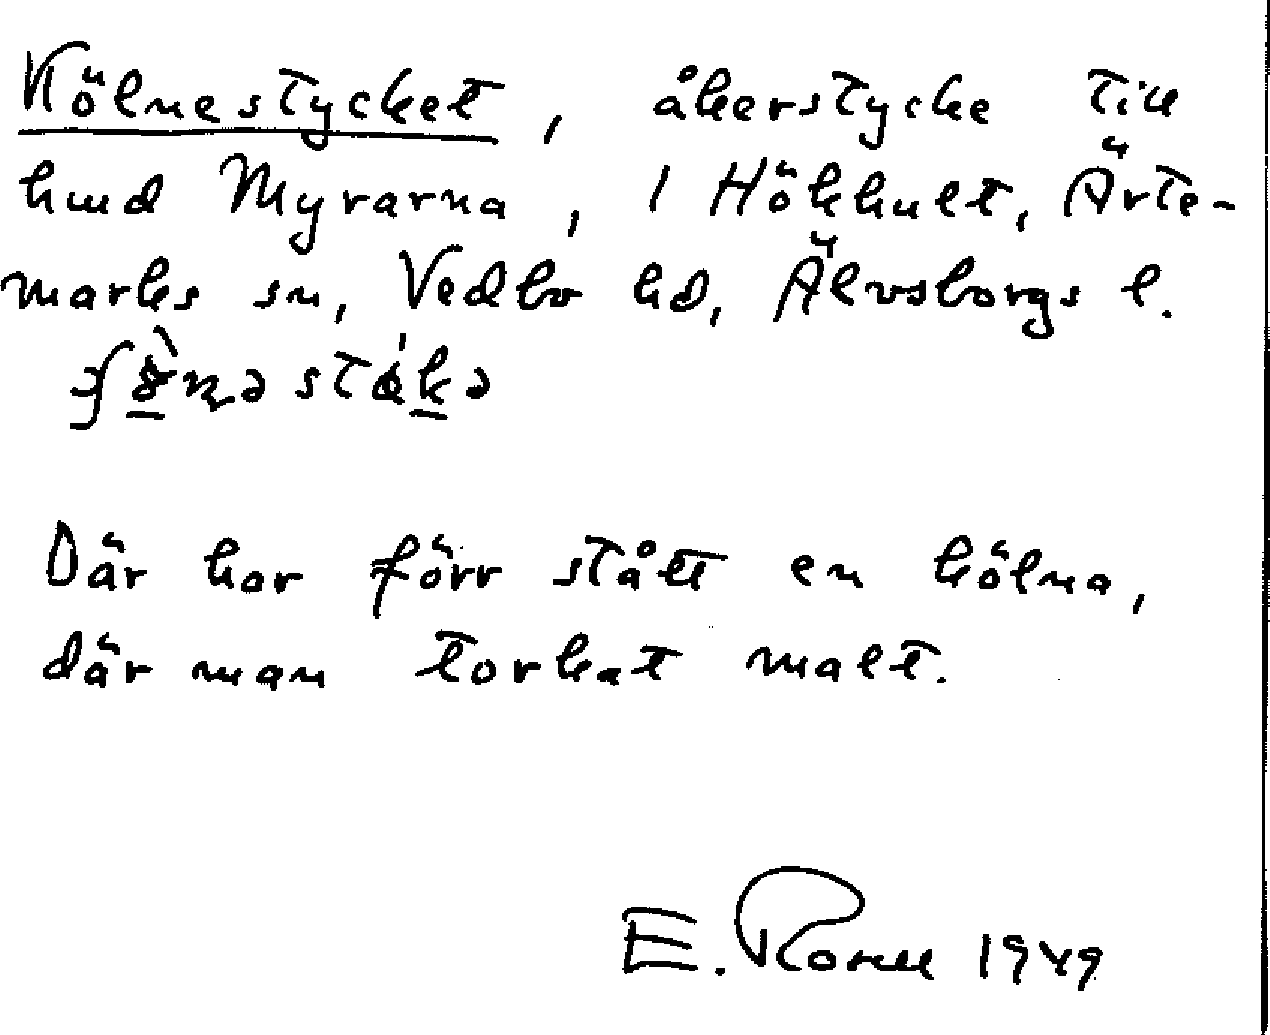 Kölnestycket, åkerstycke till
hmd Myrarna, 1 Hökhult, Ärte-
marks sn, Vedbo hd, Älvsborgs l.
Där har förr stått en kölna,
där man torkat malt.
E. 1949